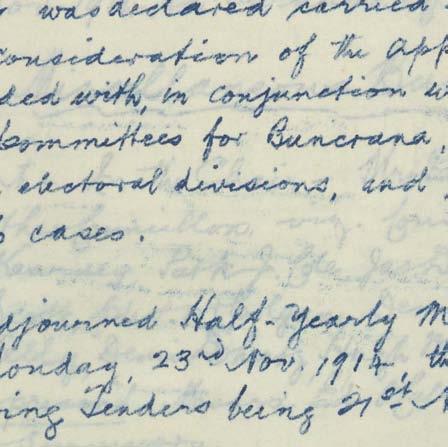 was declared carried
consideration of the App
ded with, in conjunction w
Committees for Buncrana,
electoral divisions, and
cases.
djourned Half-Yearly M
onday, 23rd Nov. 1914, th
ing Tenders being 21st